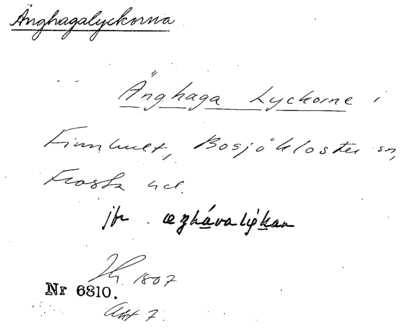 Änghagalyckorna
Änghaga Lyckorne i
Finnhult, Bosjökloster sn,
Frosta hd.
jfr.
Jh. 1807
Nr 6810.
Akt 7